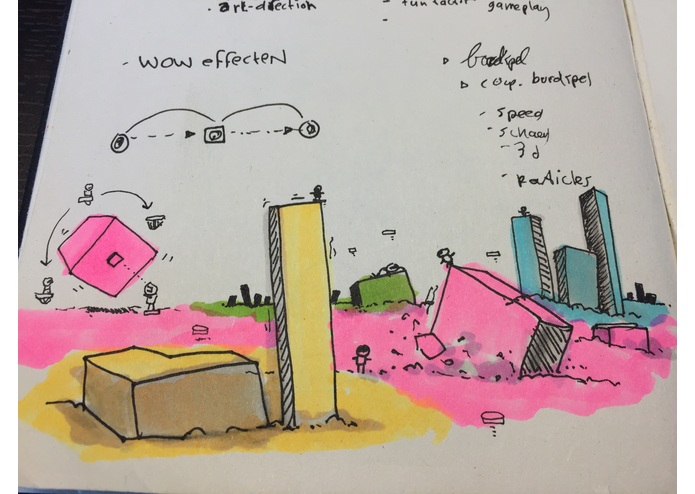 · art-direction
gameplay
- WOW effecten
▹ bordspel
▹ coop. bordspel
- speed
- schaal
- 3d
- particles